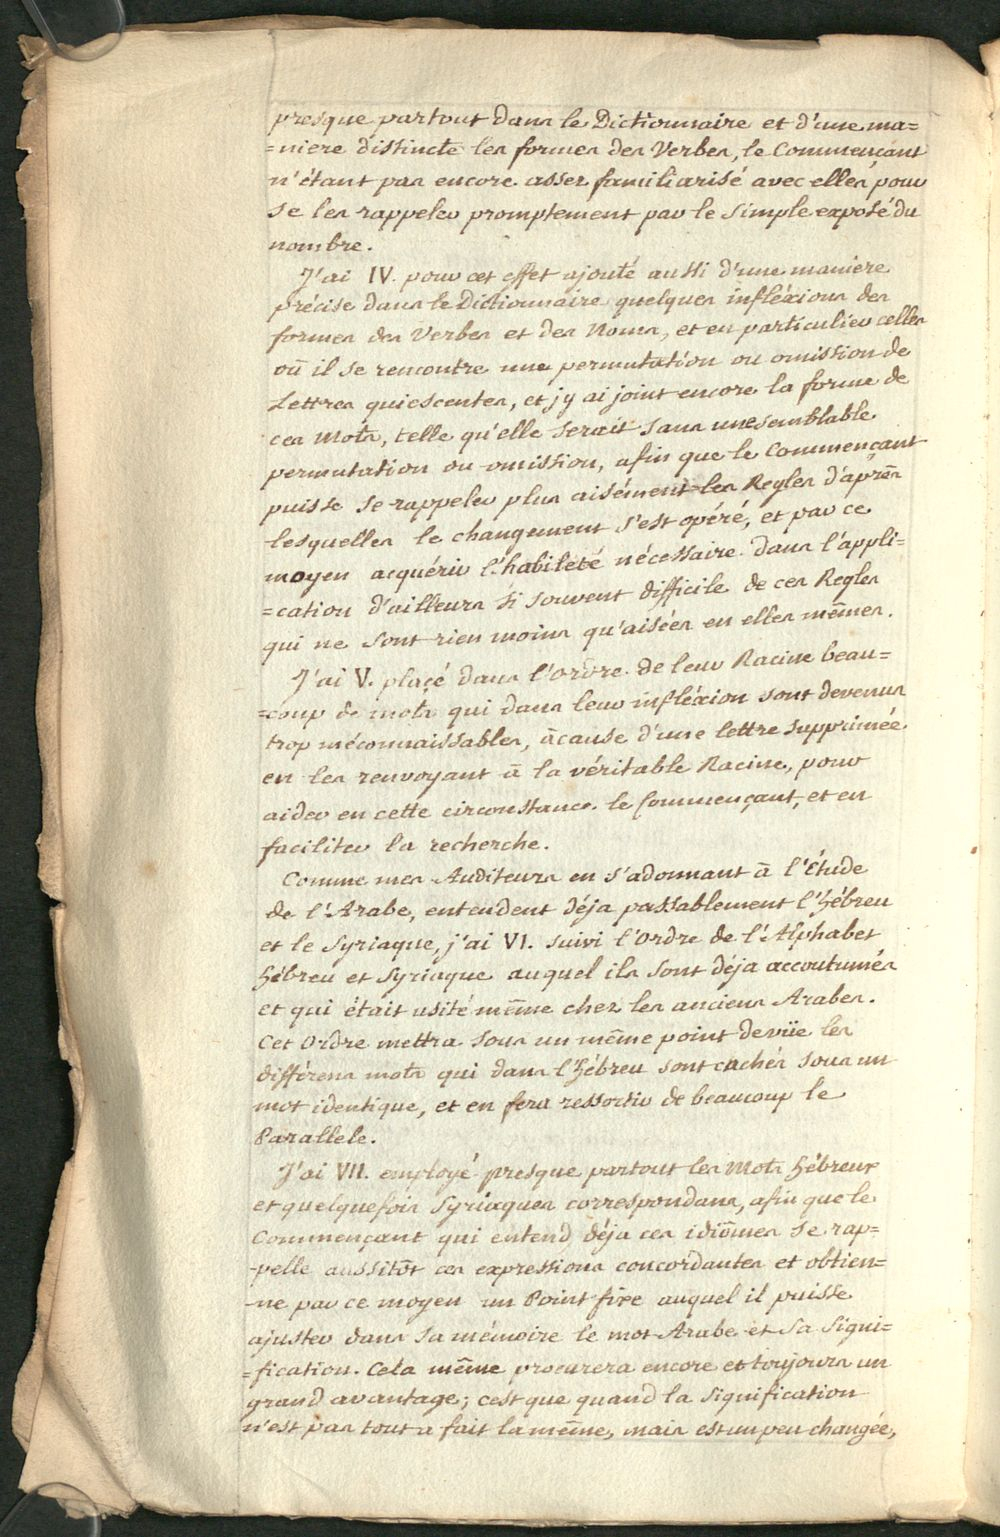 presque partout dans le Dictionnaire et d'une ma=
=niere distincte les formes des Verbes, le Commençant
n'étant pas encore assez familiarisé avec elles pour
se les rappeler promptement par le simple exposé du
nombre.
J'ai IV. pour cet effet ajouté aussi d'une maniere
précise dans le Dictionnaire quelques infléxions des
formes des Verbes et des Noms, et en particulier celles
oū il se rencontre une permutation ou omission de
Lettres quiescentes, et j'y ai joint encore la forme de
ces Mots, telle qu'elle serait sans une semblable
permutation ou omission, afin que le Commençant
puisse se rappeler plus aisément les Regles d'après
lesquelles le changement s'est opéré, et par ce
moyen acquérir l'habileté nécessaire dans l'appli=
=cation d'ailleurs si souvent difficile de ces Regles
qui ne sont rien moins qu'aisées en elles mēmes.
J'ai V. plaçé dans l'Ordre de leur Racine beau=
=coup de mots qui dans leur infléxion sont devenus
trop méconnaissables, ācause d'une lettre supprimée
en les renvoyant ā la véritable Racine, pour
aider en cette circonstance le Commençant, et en
faciliter la recherche.
Comme mes Auditeurs en s'adonnant ā l'Étude
de l'Arabe, entendent déja passablement l'hébreu
et le Syriaque, j'ai VI. suivi l'Ordre de l'Alphabet
hébreu et Syriaque auquel ils sont déja accoutumés
et qui était usité mēme chez les anciens Arabes.
Cet Ordre mettra sous un mēme point de vüe les
différens mots qui dans l'hébreu sont cachés sous un
mot identique, et en fera ressortir de beaucoup le
Parallele.
J'ai VII. employé presque partout les Mots hébreux
et quelquefois Syriaques correspondans, afin que le
Commençant qui entend déja ces idiōmes se rap=
-pelle aussitōt ces expressions concordantes et obtien=
-ne par ce moyen un Point fixe auquel il puisse
ajuster dans sa mémoire le mot Arabe et sa signi=
=fication. Cela mēme procurera encore et toujours un
grand avantage; c'est que quand la signification
n'est pas tout a fait la mēme, mais est un peu changée,